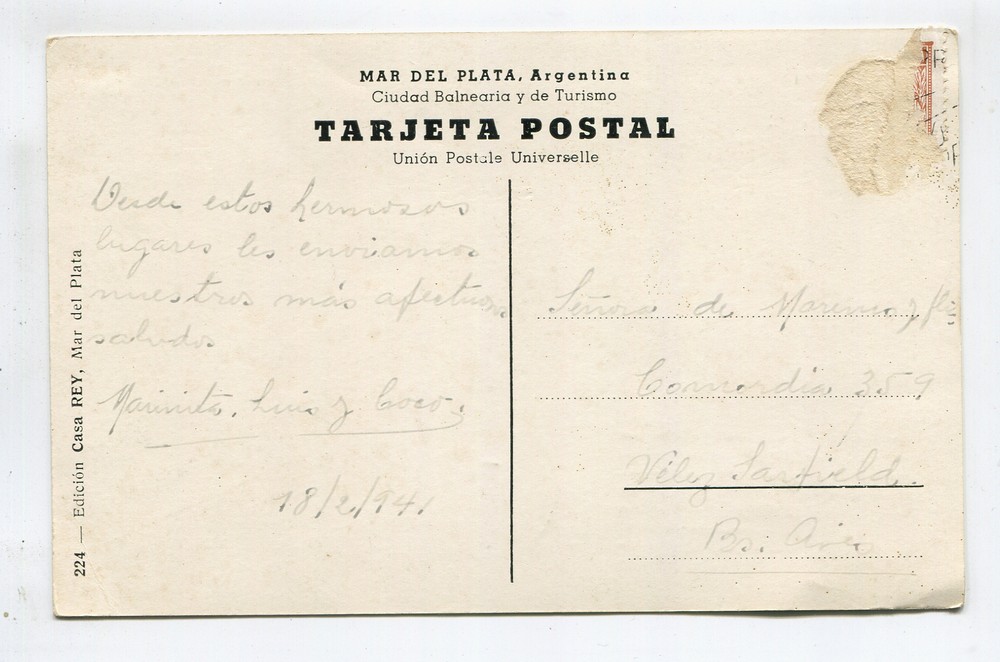 MAR DEL PLATA, Argentina
Ciudad Balnearia y de Turismo
TARJETA POSTAL
Unión Postale Universelle
Desde estos hermosos
lugares les enviamos
nuestros más afectuosos
saludos
Marinita, Luis y Coco.
18/2/941
Señora de Moreno y flia
Concordia 359
Vélez Sarfield.
Bs. Aires
224 — Edición Casa REY, Mar del Plata